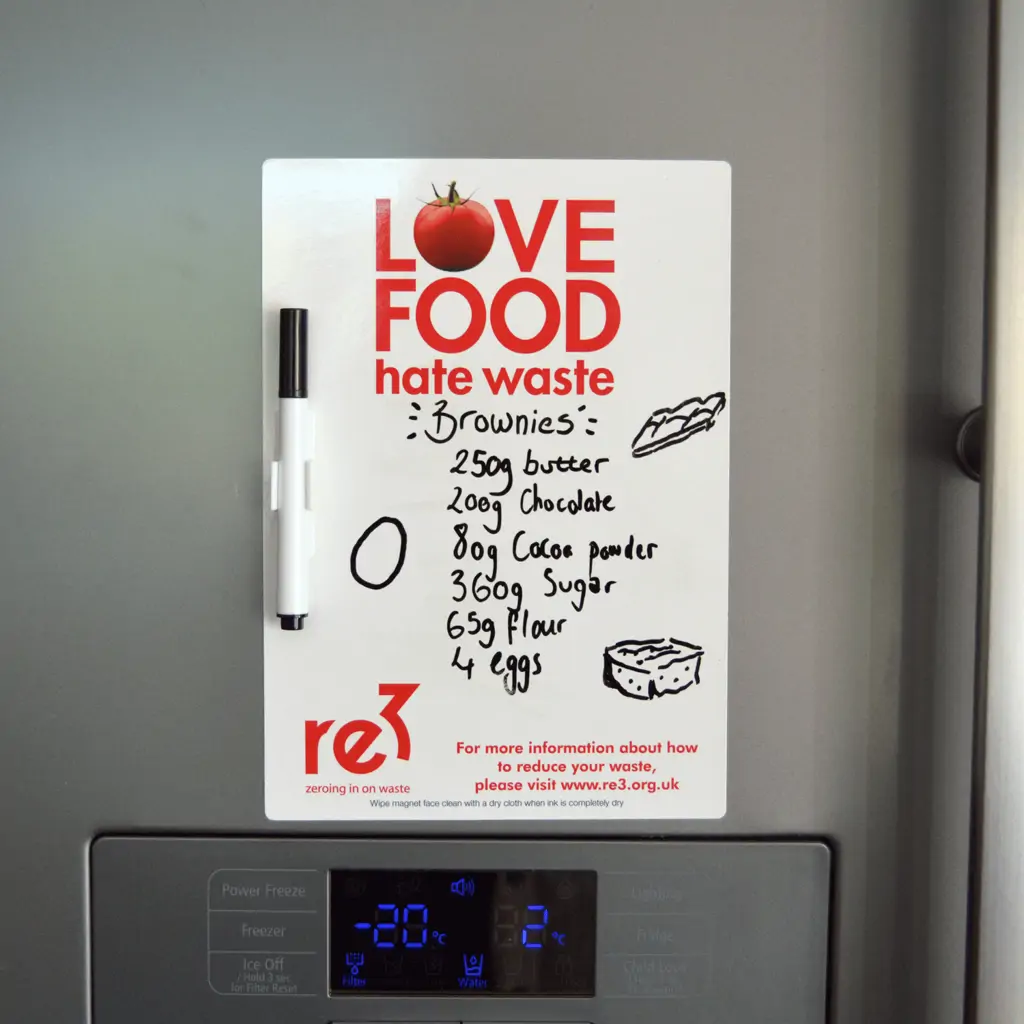 LOVE
FOOD
hate waste
Brownies
250g butter
200g Chocolate
80g Cocoa powder
360g Sugar
65g flour
4 eggs
re3
zeroing in on waste
For more information about how
to reduce your waste,
please visit www.re3.org.uk
Wipe magnet face clean with a dry cloth when ink is completely dry
Power Freeze
Freezer
Ice Off
/ Hold 3 sec
for Filter Reset
-20 °C
2 °C
Filter
Water
Lighting
Fridge
Child Lock